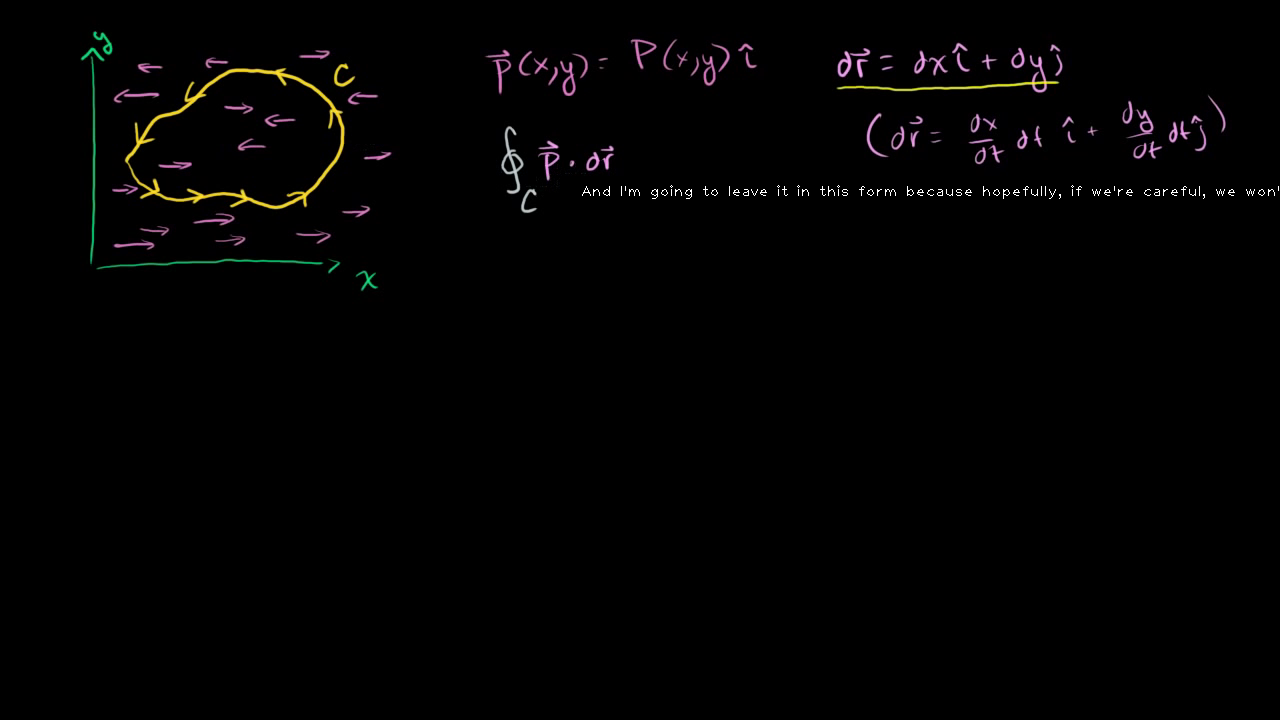 y
C
x
p⃗(x,y) = P(x,y) î
dr⃗ = dx î + dy ĵ
(dr⃗ = dx/dt dt î + dy/dt dt ĵ)
∮_C p⃗ · dr⃗
And I'm going to leave it in this form because hopefully, if we're careful, we won'